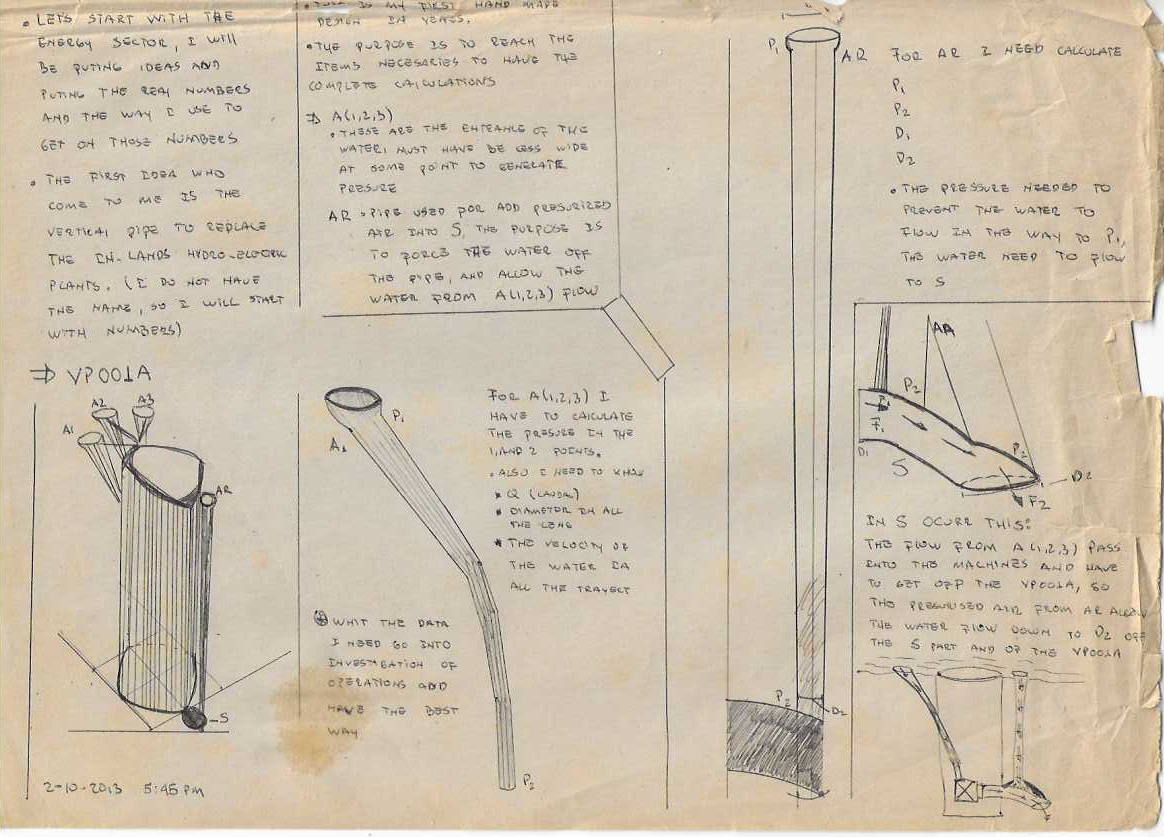 • LETS START WITH THE
ENERGY SECTOR, I WILL
BE PUTING IDEAS AND
PUTING THE REAL NUMBERS
AND THE WAY I USE TO
GET ON THOSE NUMBERS
• THE FIRST IDEA WHO
COME TO ME IS THE
VERTICAL PIPE TO REPLACE
THE IN-LANDS HYDRO-ELECTRIC
PLANTS. (I DO NOT HAVE
THE NAME, SO I WILL START
WITH NUMBERS)
⇒ VP001A
A1
A2
A3
AR
S
2-10-2013 5:45 PM
• THIS IS MY FIRST HAND MADE
DESIGN IN YEARS.
• THE PURPOSE IS TO REACH THE
ITEMS NECESARIES TO HAVE THE
COMPLETE CALCULATIONS
⇒ A(1,2,3)
• THESE ARE THE ENTRANCE OF THE
WATER, MUST HAVE BE LESS WIDE
AT SOME POINT TO GENERATE
PRESURE
AR • PIPE USED FOR ADD PRESURIZED
AIR INTO S, THE PURPOSE IS
TO FORCE THE WATER OFF
THE PIPE, AND ALLOW THE
WATER FROM A(1,2,3) FLOW
A1
P1
P2
FOR A(1,2,3) I
HAVE TO CALCULATE
THE PRESURE IN THE
1, AND 2 POINTS.
• ALSO I NEED TO KNOW
* Q (CAUDAL)
* DIAMETER IN ALL
THE LENG
* THE VELOCITY OF
THE WATER IN
ALL THE TRAYECT
WHIT THE DATA
I NEED GO INTO
INVESTIGATION OF
OPERATIONS AND
HAVE THE BEST
WAY
P1
AR
P2
D2
FOR AR I NEED CALCULATE
P1
P2
D1
D2
• THE PRESSURE NEEDED TO
PREVENT THE WATER TO
FLOW IN THE WAY TO P1,
THE WATER NEED TO FLOW
TO S
AR
P2
P1
F1
D1
S
P2
D2
F2
IN S OCURR THIS:
THE FLOW FROM A(1,2,3) PASS
INTO THE MACHINES AND HAVE
TO GET OFF THE VP001A, SO
THE PRESURISED AIR FROM AR ALLOW
THE WATER FLOW DOWN TO D2 OFF
THE S PART AND OF THE VP001A